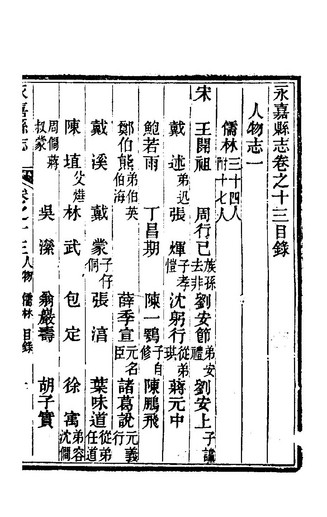 永嘉縣志卷之十三目錄
人物志一
儒林三十四人附十七人
宋 王開祖 周行己族孫去非 劉安節弟安禮 劉安上子誠
戴述弟迅 張煇子孝愷 沈躬行從弟琪 蔣元中
鮑若雨 丁昌期 陳一鶚子自修 陳鵬飛
鄭伯熊弟伯英伯海 薛季宣 諸葛說
戴溪 戴蒙子仔侗 張淳 葉味道從弟任道
陳埴父燁 林武 包定 徐寓弟容沈僩
周僩蔣叔蒙 吳溁 翁巖壽 胡子實
永嘉縣志 卷之十三 人物 儒林 目錄 一